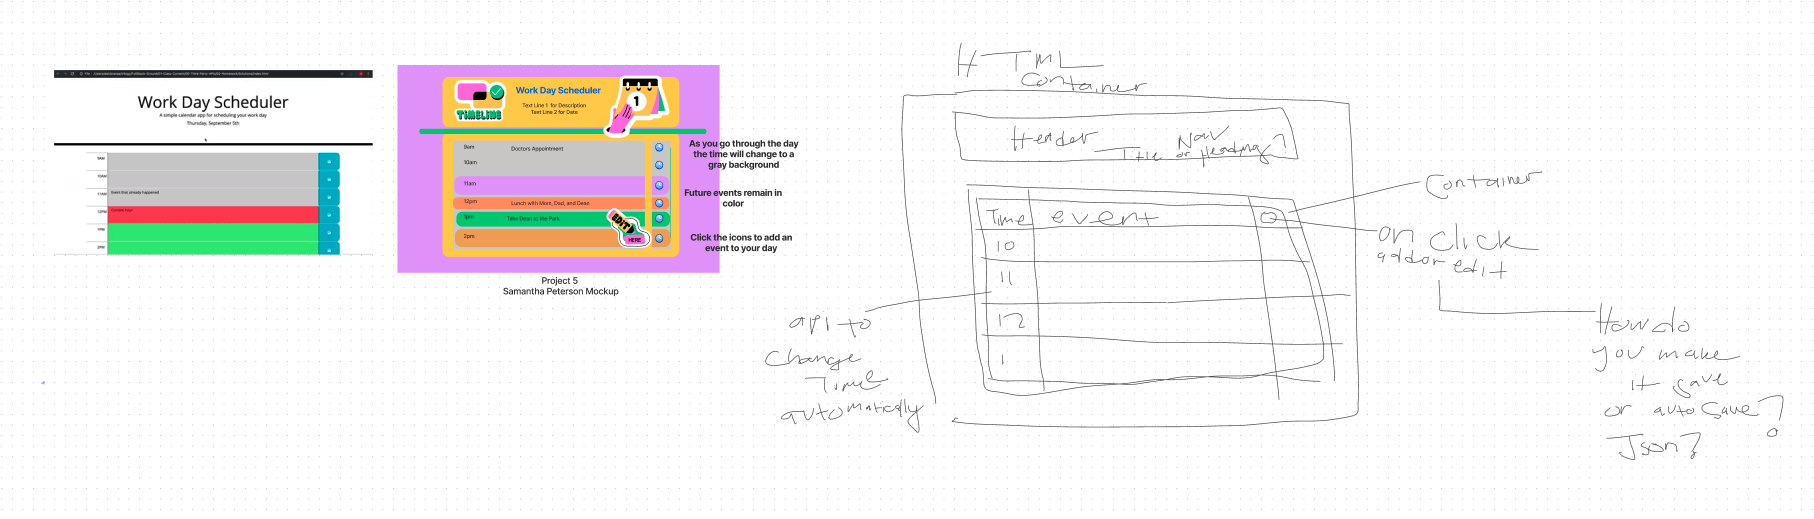 Work Day Scheduler
A simple calendar app for scheduling your work day
Thursday, September 5th
9AM
10AM
11AM Event that already happened
12PM Current hour
1PM
2PM
TIMELINE
Work Day Scheduler
Text Line 1 for Description
Text Line 2 for Date
1
9am Doctors Appointment
10am
11am
12pm Lunch with Mom, Dad, and Dean
1pm Take Dean to the Park
2pm
EDIT
HERE
As you go through the day
the time will change to a
gray background
Future events remain in
color
Click the icons to add an
event to your day
Project 5
Samantha Peterson Mockup
HTML
Container
Header
Nav
Title or Heading?
Time event
10
11
12
1
Container
on click
add or edit
api to
change
Time
automatically
How do
you make
it save
or auto save?
Json?